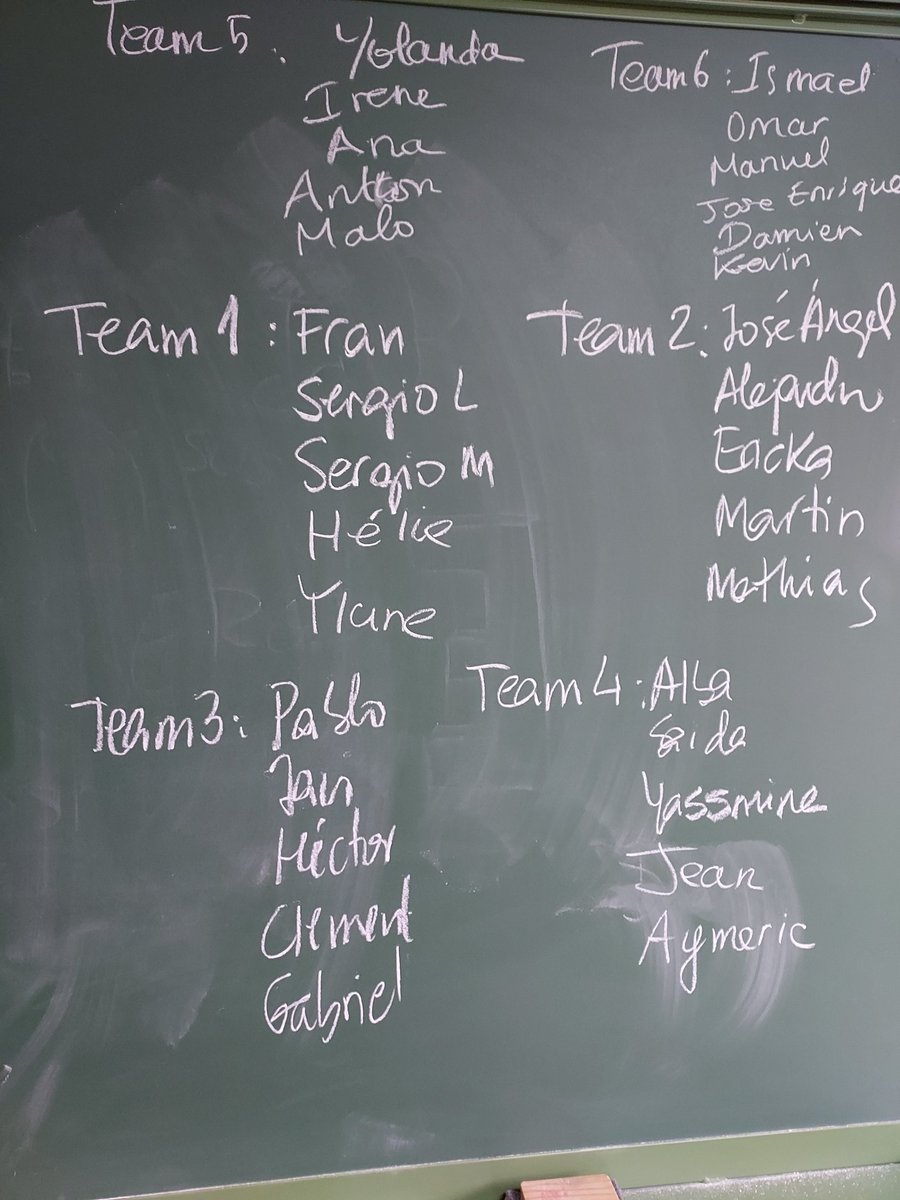 Team 5: Yolanda
Irene
Ana
Malo
Team 6: Ismael
Omar
Manuel
Jose Enrique
Damien
Kevin
Team 1: Fran
Sergio L
Sergio M
Hélie
Ylane
Team 2: José Ángel
Alejandro
Ericka
Martin
Mathias
Team 3: Pablo
Héctor
Clement
Gabriel
Team 4: Alba
Saida
Yassmine
Jean
Aymeric